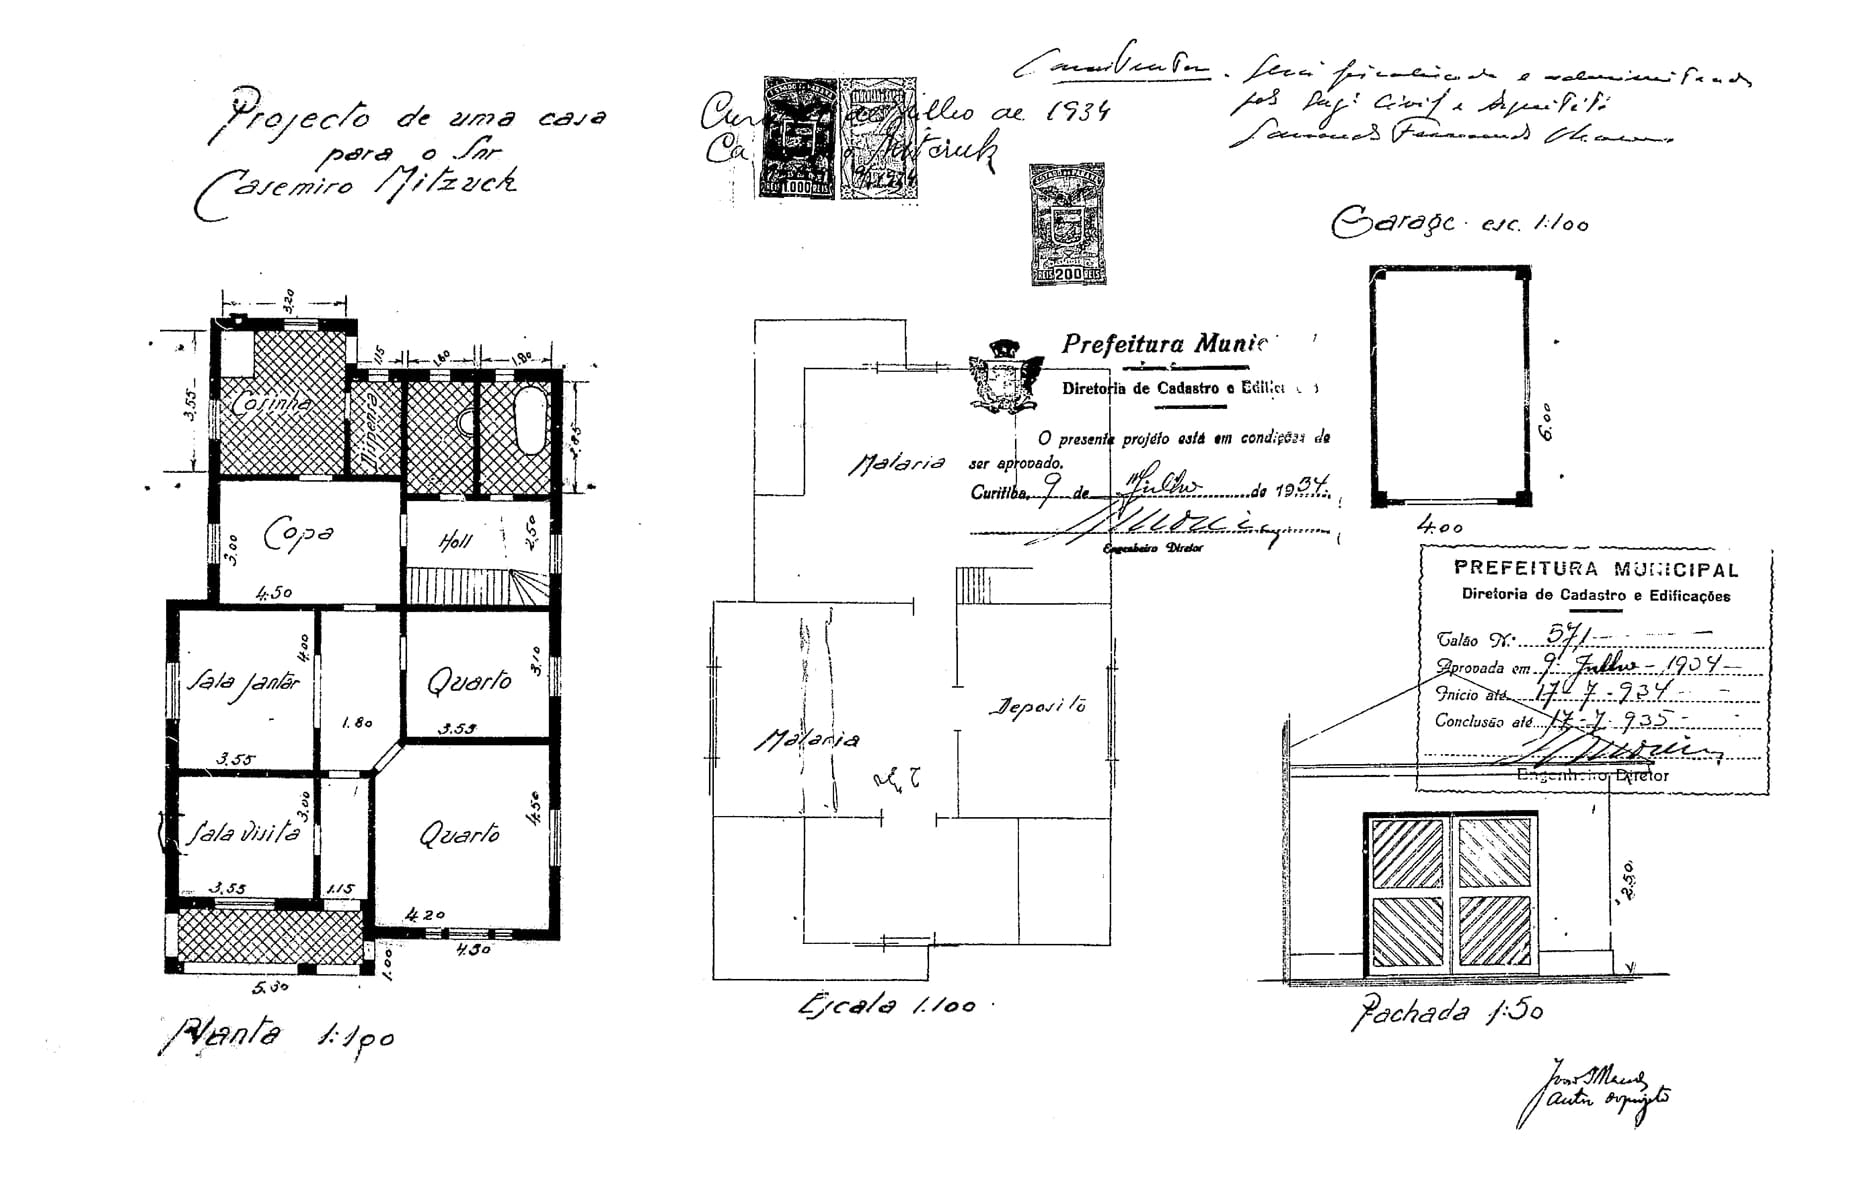 Projecto de uma casa
para o Snr
Casemiro Mitzuck
Julho de 1934
Mitcruk
1.000
REIS 200 REIS
Construtor. Será fiscalizada e administrada
por Engº Civil e Arquitéto
Fernando
Garage. esc. 1:100
6.00
4.00
3.20
3.55
1.15
1.60
1.80
2.85
Cosinha
Dispensa
Copa
3.00
4.50
Holl
2.50
Sala Jantar
4.00
3.55
1.80
Quarto
3.10
3.55
Sala Visita
3.00
3.55
1.15
Quarto
4.50
4.20
4.30
1.00
5.30
Planta 1:100
Malaria
Malaria
Deposito
Escala 1:100
Prefeitura Munic
Diretoria de Cadastro e Edific
O presente projéto está em condições de
ser aprovado.
Curitiba, 9 de Julho de 1934.
Engenheiro Diretor
PREFEITURA MUNICIPAL
Diretoria de Cadastro e Edificações
Talão N.º 571
Aprovada em 9 Julho - 1934 -
Início até 17 - 7 - 934
Conclusão até 17 - 7 - 935 -
Engenheiro Diretor
2.50
Fachada 1:50
autor do projeto